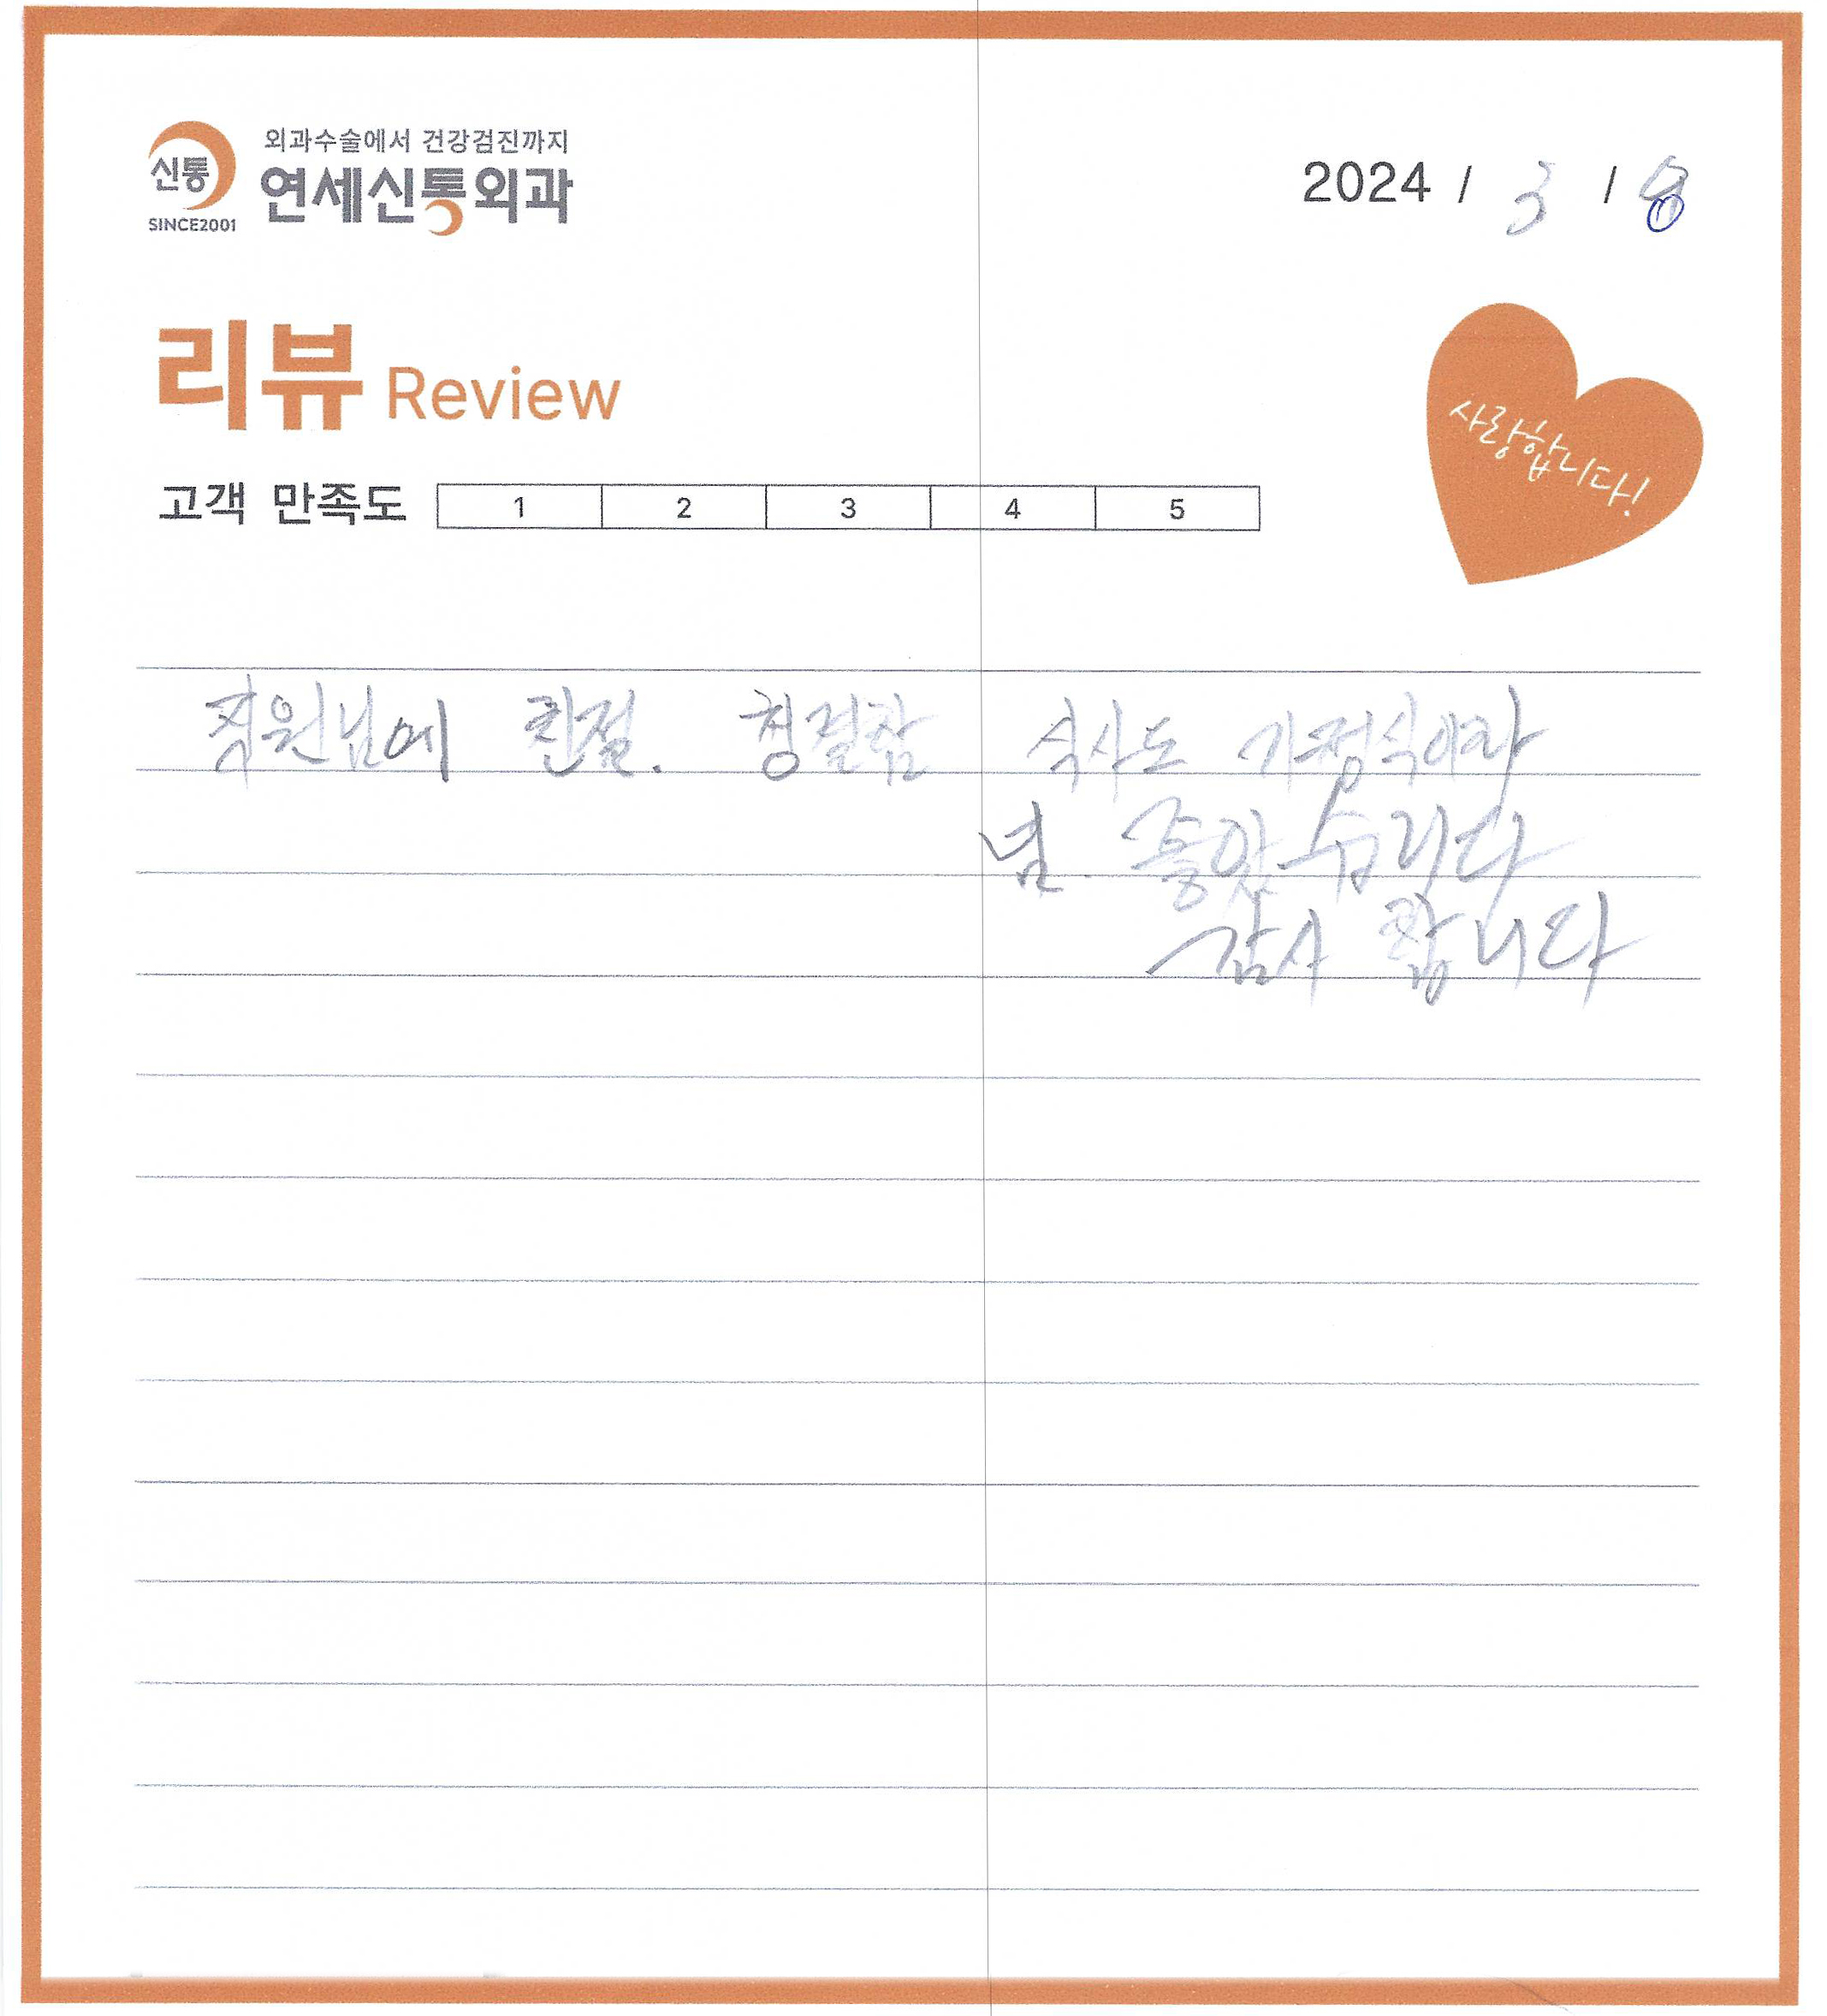 외과수술에서 건강검진까지
신통
연세신통외과
SINCE2001
2024 / 3 / 8
리뷰 Review
사랑합니다!
고객 만족도 1 2 3 4 5
직원님에 친절. 청결함 식사도 가정식이라
넘. 좋았습니다
감사 합니다